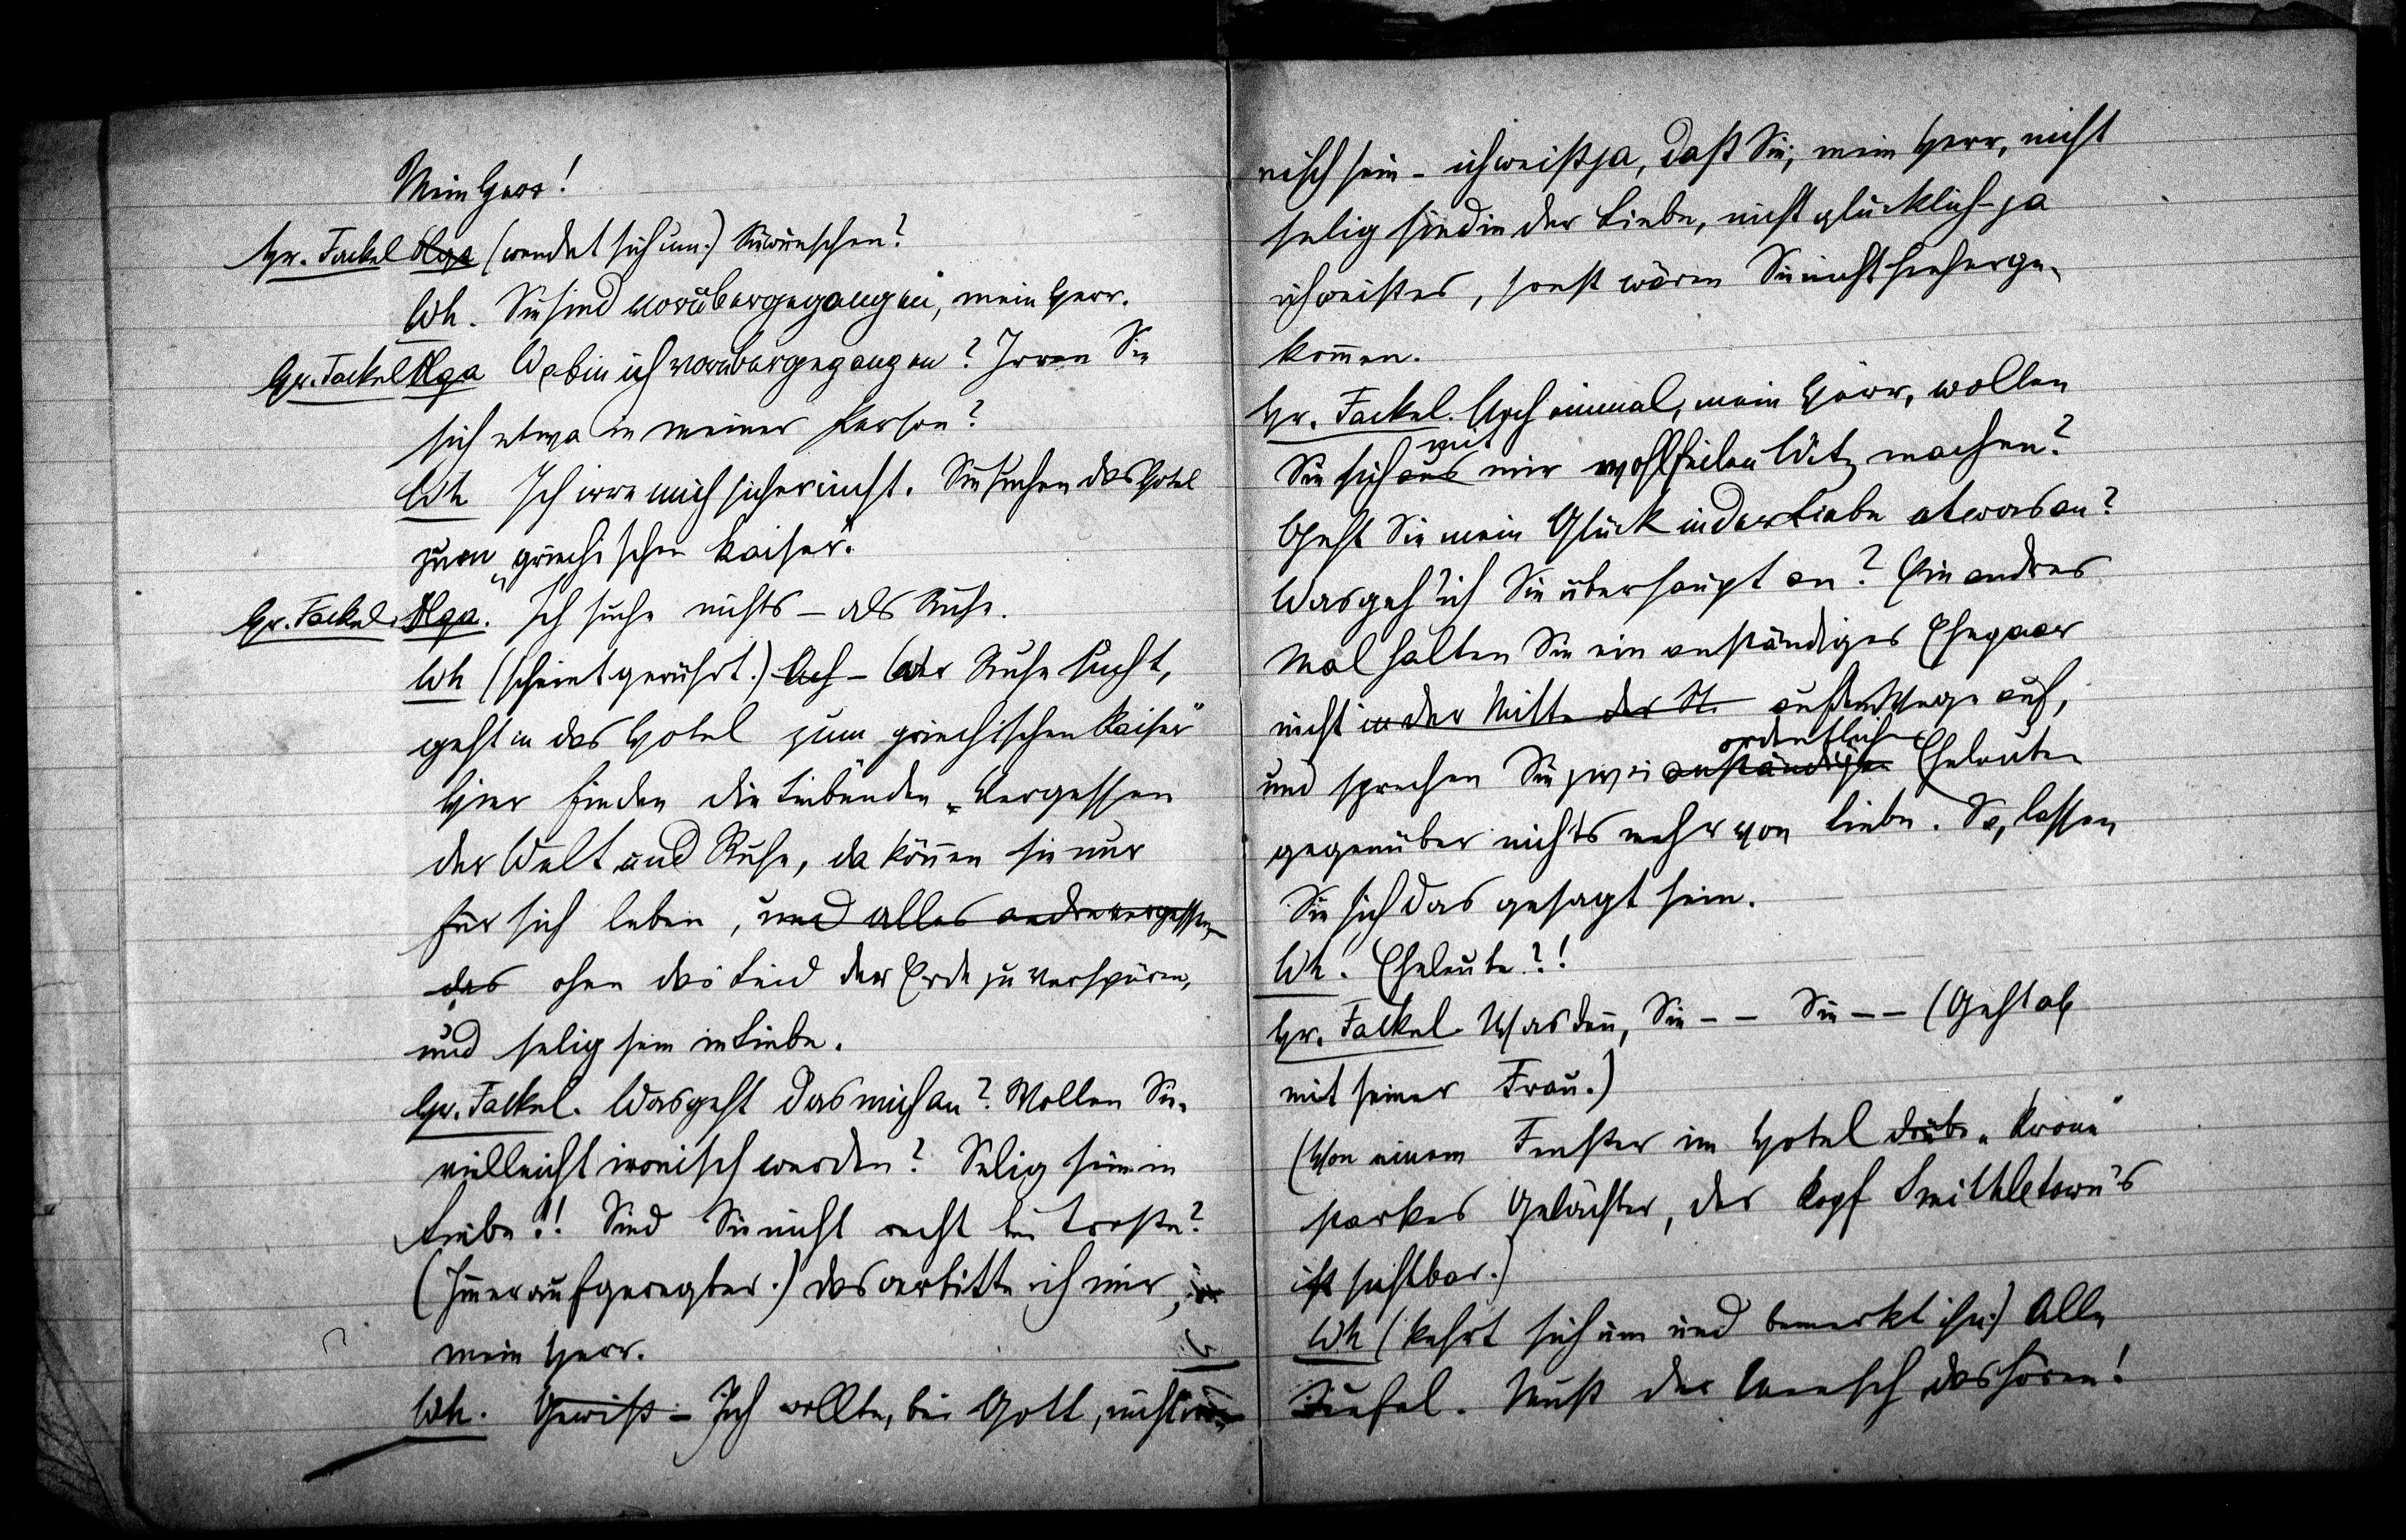 Mein Herr!
Hr. Fackel Olga (wendet sich um.) Sie wünschen?
Wh. Sie sind vorübergegangen, mein Herr.
Hr. Fackel Olga Wo bin ich vorübergegangen? Irren Sie
sich etwa in meiner Person?
Wh Ich irre mich sicher nicht. Sie suchen das Hotel
zum „griechischen Kaiser“.
Hr. Fackel. Olga. Ich suche nichts – als Ruhe.
Wh (scheint gerührt.) Ach – Wer Ruhe sucht,
geht in das Hotel zum griechischen Kaiser“
Hier finden die Liebenden Vergessen
der Welt und Ruhe, da können sie nur
für sich leben, und alles andre vergessen,
das ohne das Leid der Erde zu verspüren,
und selig sein in Liebe.
Hr. Fackel. Was geht das mich an? Wollen Sie
vielleicht ironisch werden? Selig sein in
Liebe!! Sind Sie nicht recht bei Troste?
(Immer aufgeregter.) Das verbitte ich mir,
mein Herr.
Wh. Gewiß – Ich wollte, bei Gott, nicht iro-
nisch sein – ich weiß ja, daß Sie, mein Herr, nicht
selig sind in der Liebe, nicht glücklich – ja
ich weiß es, sonst wären Sie nicht hieherge-
kommen.
Hr. Fackel. Noch einmal, mein Herr, wollen
mit
Sie sich aus mir wohlfeilen Witz machen?
Geht Sie mein Glück in der Liebe etwas an?
Was geh' ich Sie überhaupt an? Ein andres
Mal halten Sie ein anständiges Ehepaar
nicht in der Mitte der St. auf dem Wege auf,
ordentlichen
und sprechen Sie zwei anständigen Eheleuten
gegenüber nichts mehr von Liebe. So, lassen
Sie sich das gesagt sein.
Wh. Eheleute?!
Hr. Fackel Was denn, Sie – – Sie – – (Geht ab
mit seiner Frau.)
(Von einem Fenster im Hotel drüb. „Krone“
starkes Gelächter, der Kopf Smithletown's
ist sichtbar.)
Wh (kehrt sich um und bemerkt ihn.) Alle
Teufel. Muß der Mensch das hören!